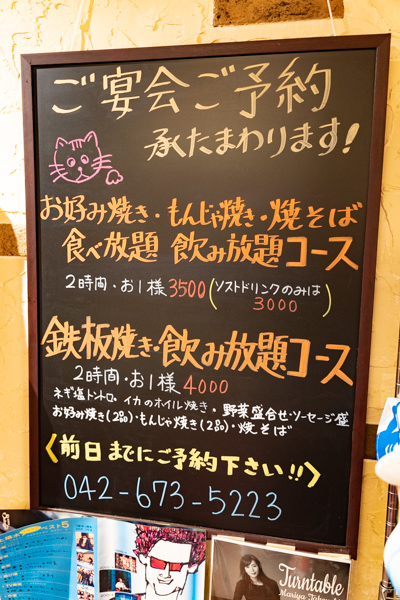 ご宴会ご予約
承たまわります!
お好み焼き・もんじゃ焼き・焼そば
食べ放題 飲み放題コース
2時間・お1様3500(ソストドリンクのみは
3000)
鉄板焼き・飲み放題コース
2時間・お1様4000
ネギ塩トントロ・イカのホイル焼き・野菜盛合せ・ソーセージ盛
お好み焼き(2品)・もんじゃ焼き(2品)・焼そば
〈前日までにご予約下さい!!〉
042-673-5223
ベスト5
Turntable
Mariya